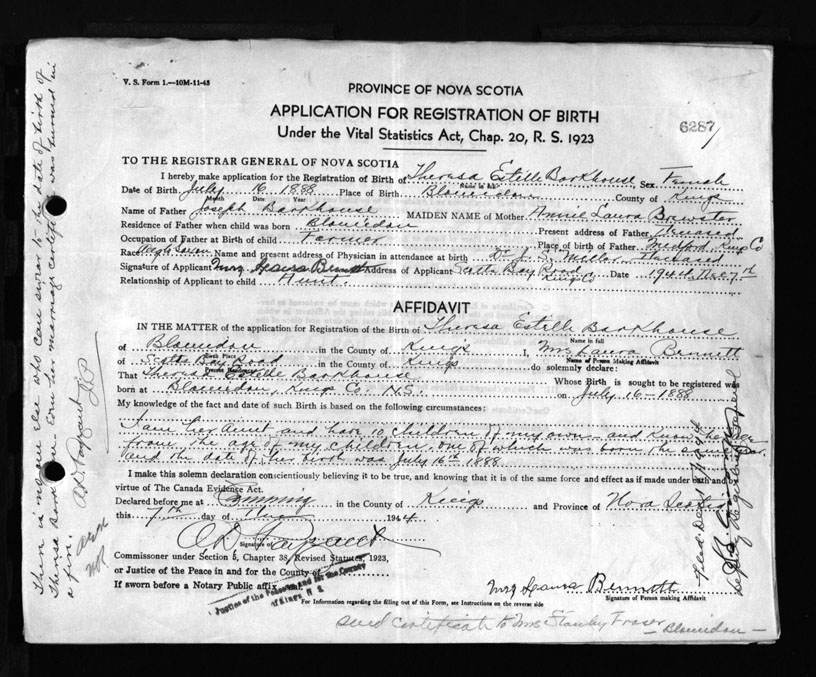 V. S. Form 1.—10M-11-43
PROVINCE OF NOVA SCOTIA
APPLICATION FOR REGISTRATION OF BIRTH
Under the Vital Statistics Act, Chap. 20, R. S. 1923
6287
TO THE REGISTRAR GENERAL OF NOVA SCOTIA
I hereby make application for the Registration of Birth of Theresa Estelle Barkhouse, Sex Female
Name in full
Date of Birth July 16 1888 Place of Birth Blomidon County of Kings
Month Date Year
Name of Father Joseph Barkhouse MAIDEN NAME of Mother Annie Laura Brewster
Residence of Father when child was born Blomidon Present address of Father Deceased
Occupation of Father at Birth of child Farmer Place of Birth of Father Medford Kings Co
Race Anglo Saxon Name and present address of Physician in attendance at birth Dr. J. S. Miller Deceased
Signature of Applicant Mrs Laura Bennett Address of Applicant Scotts Bay Road Kings Co Date 1944 Dec 7th
Relationship of Applicant to child Aunt.
AFFIDAVIT
IN THE MATTER of the application for Registration of the Birth of Theresa Estelle Barkhouse
Name in full
of Blomidon in the County of Kings I, Mrs Laura Bennett
Birth Place Name of Person Making Affidavit
of Scotts Bay Road in the County of Kings do solemnly declare:
Present Residence
That Theresa Estelle Barkhouse Whose Birth is sought to be registered was
born at Blomidon, Kings Co. N.S. on July 16-1888
My knowledge of the fact and date of such Birth is based on the following circumstances:
I am her Aunt and have 10 children of my own and know her age
from the age of my children, one of which was born the same year.
and the date of her birth was July 16th 1888
I make this solemn declaration conscientiously believing it to be true, and knowing that it is of the same force and effect as if made under oath and by
virtue of The Canada Evidence Act.
Declared before me at Canning in the County of Kings and Province of Nova Scotia
this 7th day of 1944
Signature of
Commissioner under Section 5, Chapter 38, Revised Statutes, 1923,
or Justice of the Peace in and for the County of
If sworn before a Notary Public affix
Justice of the Peace in and for the County
of Kings, N. S.
Mrs Laura Bennett
Signature of Person making Affidavit
For Information regarding the filling out of this Form, see Instructions on the reverse side
Send certificate to Mrs Stanley Fraser
— Blomidon —
There is no one else who can swear to the date of birth of
Theresa Even her marriage certificate was burned in
a fire